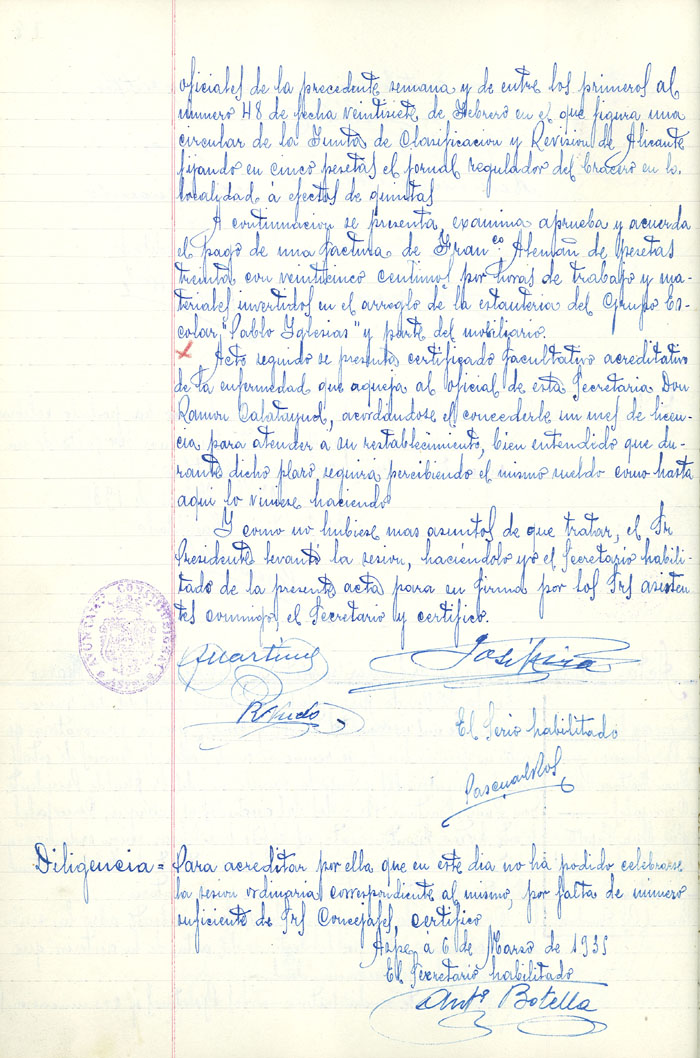 oficiales de la precedente semana y de entre los primeros al
número 48 de fecha veintisiete de Febrero en el que figura una
circular de la Junta de Clasificacion y Revision de Alicante
fijando en cinco pesetas el jornal regulador del bracero en la
localidad á efectos de quintas
A continuacion se presenta, examina aprueba y acuerda
el pago de una factura de Franco Alemañ de pesetas
treinta con veinticinco centimos por horas de trabajo y ma-
teriales invertidos en el arreglo de la estanteria del Grupo Es-
colar "Pablo Yglesias" y parte del mobiliario.
Acto seguido se presenta certificado facultativo acreditativo
de la enfermedad que aqueja al oficial de esta Secretaria Don
Ramon Calatayud, acordándose el concederle un mes de licen-
cia para atender a su restablecimiento, bien entendido que du-
rante dicho plazo seguira percibiendo el mismo sueldo como hasta
aqui lo viniese haciendo
Y como no hubiese mas asuntos de que tratar, el Sr
Presidente levantó la sesion, haciéndolo yo el Secretario habili-
tado de la presente acta para su firma por los Srs asisten-
tes conmigo el Secretario y certifico.
AYUNTAMTO CONSTITUCIONAL
AMartinez
Pasqual
El Serio habilitado
Diligencia = Para acreditar por ella que en este dia no há podido celebrarse
la sesion ordinaria correspondiente al mismo, por falta de número
suficiente de Srs Concejales, certifico
Aspe, a 6 de Marzo de 1935
El Secretario habilitado
Anto Botella